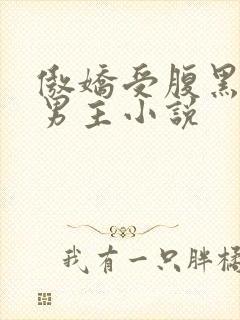 傲嬌受腹黑
男主小說
我有一只胖橘